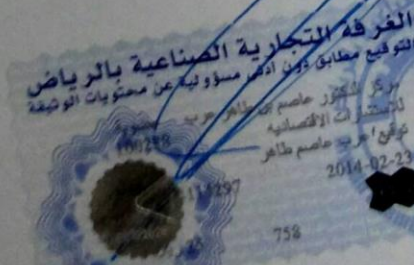 الغرفة التجارية الصناعية بالرياض
التوقيع مطابق دون أدنى مسؤولية عن محتويات الوثيقة
مركز الدكتور عاصم طاهر عرب عضوية
للاستشارات الاقتصادية 100258
توقيع/عرب عاصم طاهر
2014-02-23
758